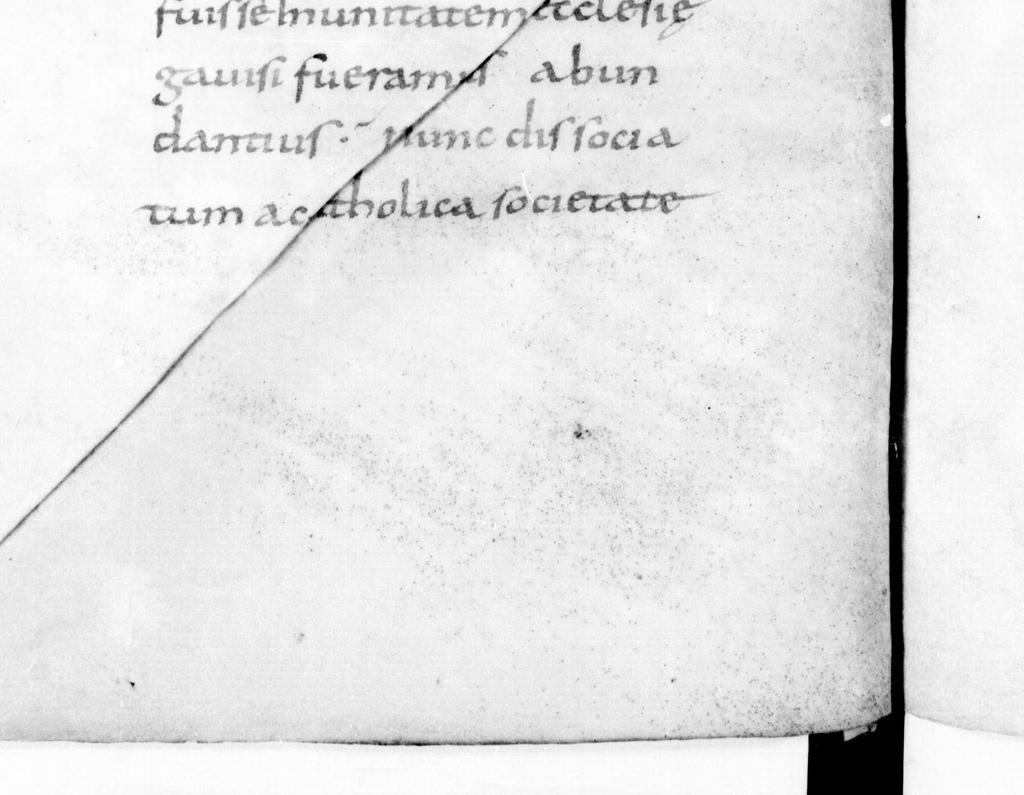 fuisse Inunitatem ecclesię
gauisi fueramus abun
dantius · nunc dissocia
tum a catholica societate